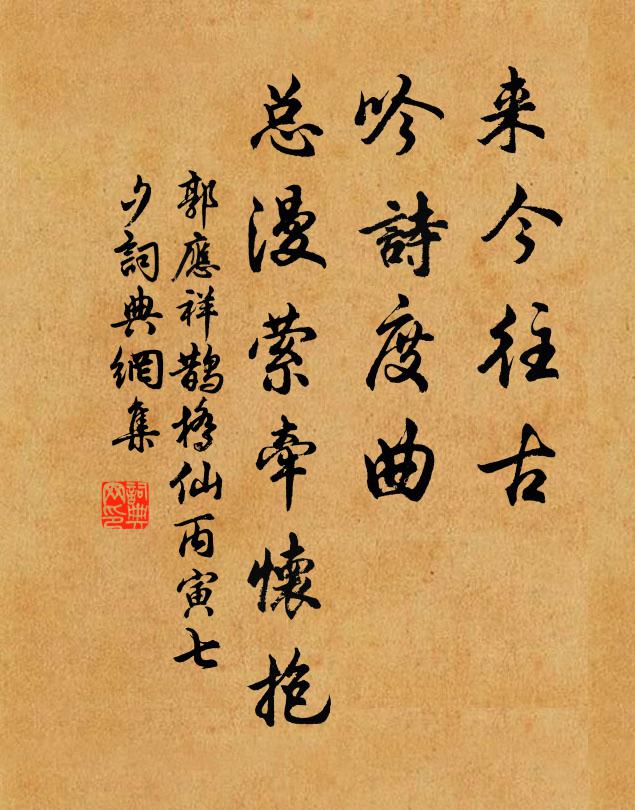 来今往古
吟詩度曲
总漫萦牵懷抱
郭應祥鵲橋仙丙寅七
夕詞典網集
詞典網印